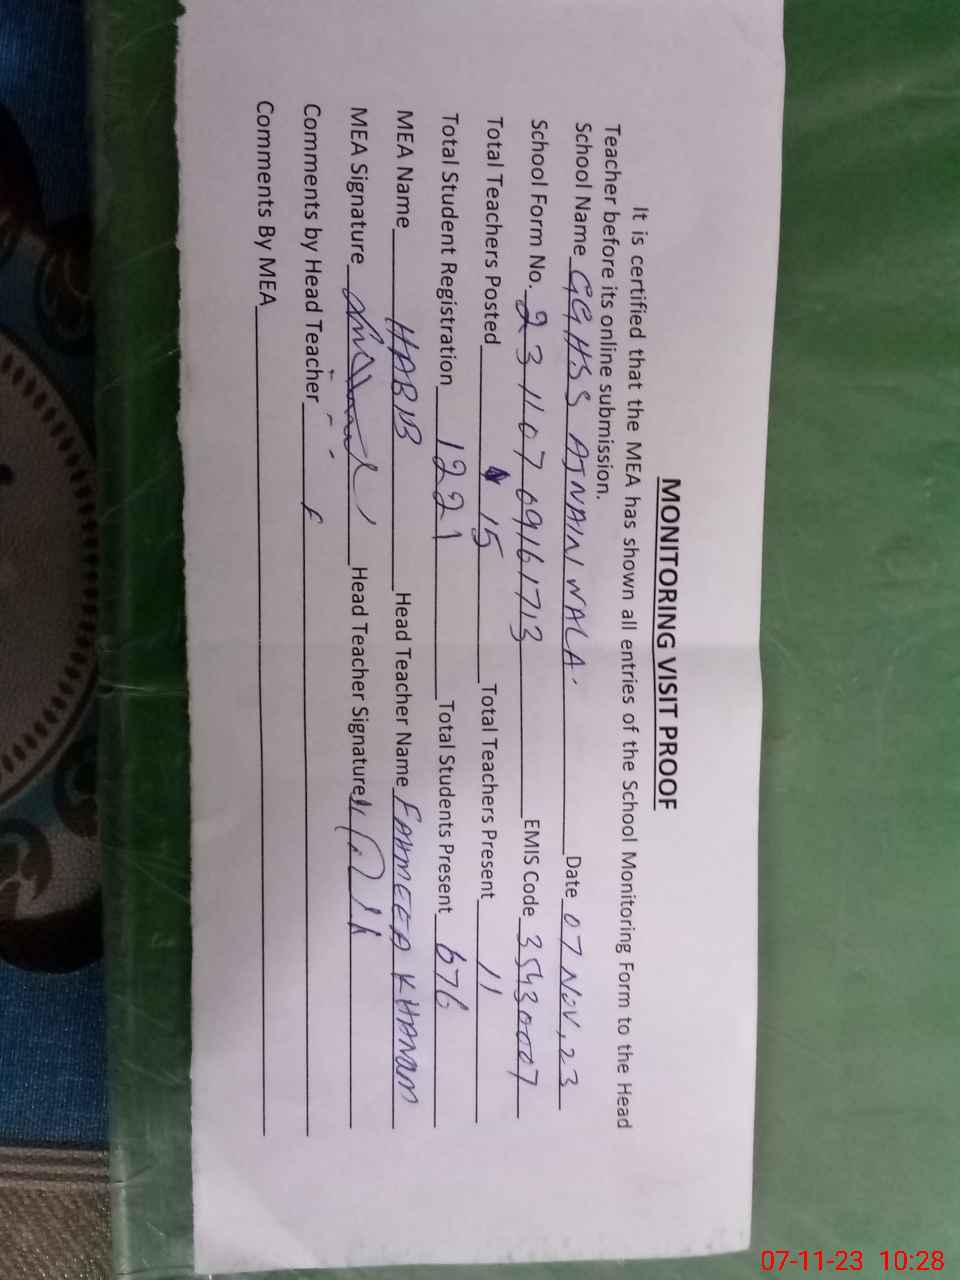 MONITORING VISIT PROOF
It is certified that the MEA has shown all entries of the School Monitoring Form to the Head
Teacher before its online submission.
School Name GGHSS AJNAINWALA. Date 07 Nov, 23
School Form No. 23110769161713 EMIS Code 35430007
Total Teachers Posted 15 Total Teachers Present 11
Total Student Registration 1221 Total Students Present 676
MEA Name HABIB Head Teacher Name FAHMEEDA KHANAM
MEA Signature Head Teacher Signature
Comments by Head Teacher
Comments By MEA
07-11-23 10:28